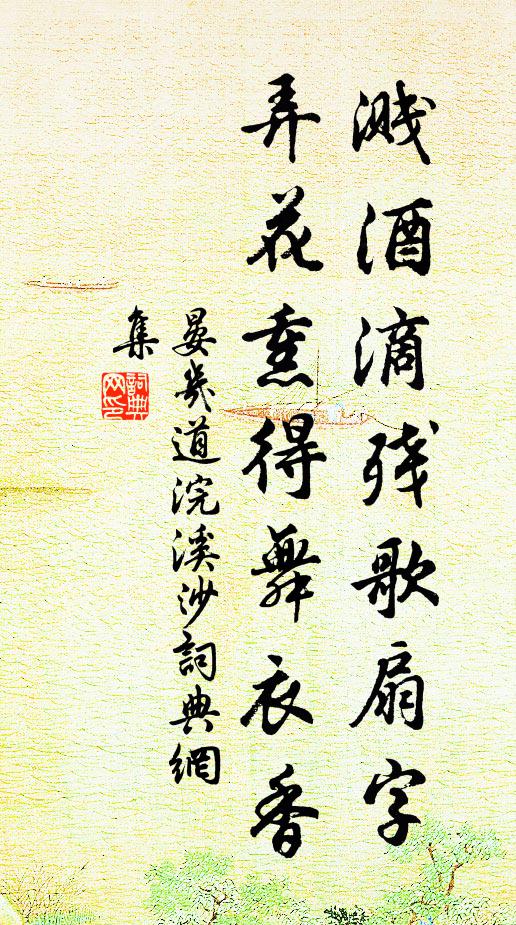 溅酒滴残歌扇字
弄花熏得舞衣香
晏幾道浣溪沙詞典網
集
詞典
网印